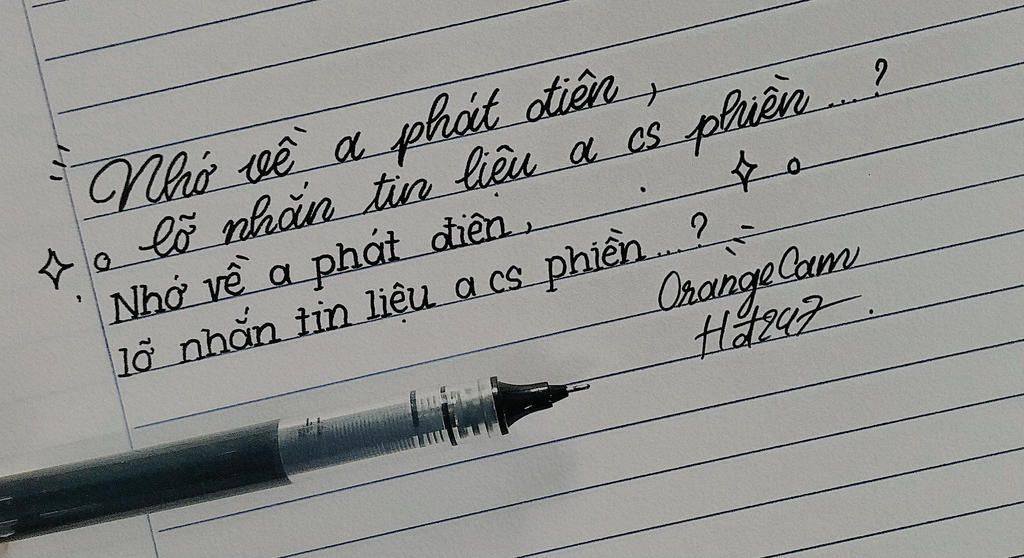 Nhớ về a phát điên,
lỡ nhắn tin liệu a cs phiền...?
Nhớ về a phát điên,
lỡ nhắn tin liệu a cs phiền...?
OrangeCam
Hd247